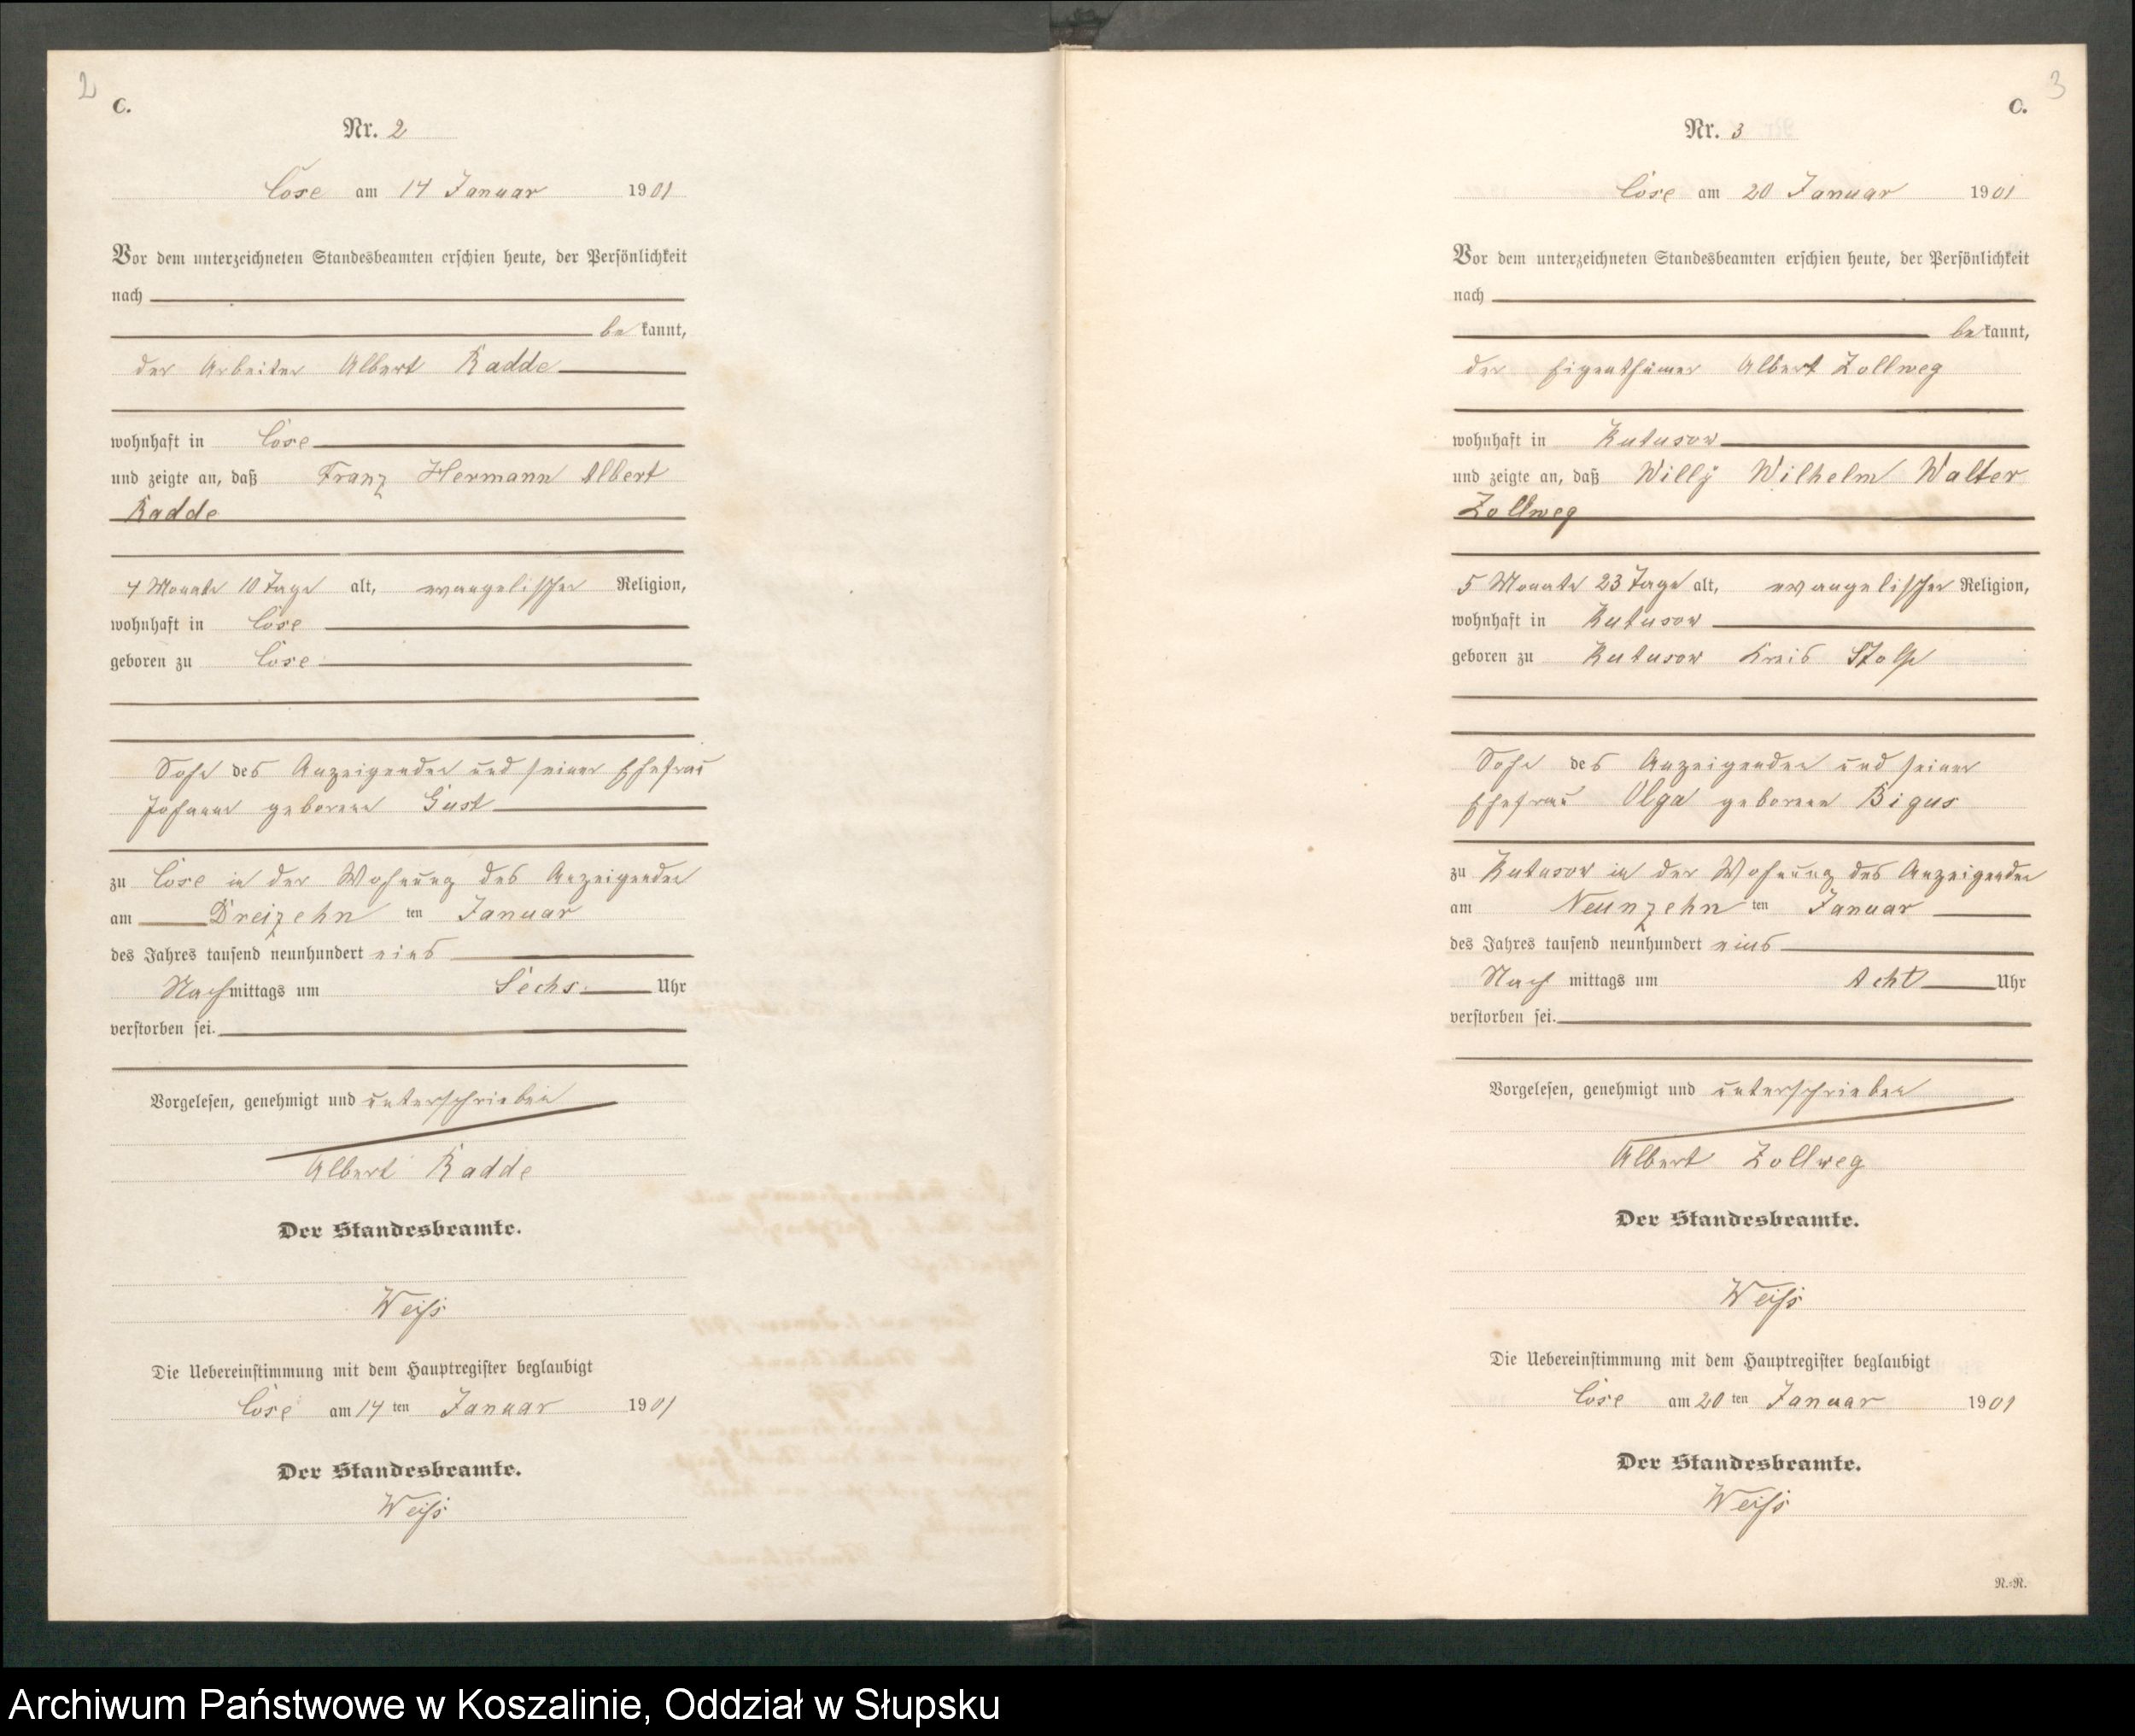 2
C.
Nr. 2
Lose am 14 Januar 1901
Vor dem unterzeichneten Standesbeamten erschien heute, der Persönlichkeit
nach
bekannt,
der Arbeiter Albert Radde
wohnhaft in Lose
und zeigte an, daß Franz Hermann Albert
Radde
4 Monate 10 Tage alt, evangelischer Religion,
wohnhaft in Lose
geboren zu Lose
Sohn des Anzeigenden und seiner Ehefrau
Johanne geborene Gust
zu Lose in der Wohnung des Anzeigenden
am Dreizehn ten Januar
des Jahres tausend neunhundert eins
Nachmittags um Sechs Uhr
verstorben sei.
Vorgelesen, genehmigt und unterschrieben
Albert Radde
Der Standesbeamte.
Weiß
Die Uebereinstimmung mit dem Hauptregister beglaubigt
Lose am 14 ten Januar 1901
Der Standesbeamte.
Weiß
3
C.
Nr. 3
Lose am 20 Januar 1901
Vor dem unterzeichneten Standesbeamten erschien heute, der Persönlichkeit
nach
bekannt,
der Eigenthümer Albert Zollweg
wohnhaft in Kutusow
und zeigte an, daß Willy Wilhelm Walter
Zollweg
5 Monate 23 Tage alt, evangelischer Religion,
wohnhaft in Kutusow
geboren zu Kutusow Kreis Stolp
Sohn des Anzeigenden und seiner
Ehefrau Olga geborene Bigus
zu Kutusow in der Wohnung des Anzeigenden
am Neunzehn ten Januar
des Jahres tausend neunhundert eins
Nach mittags um Acht Uhr
verstorben sei.
Vorgelesen, genehmigt und unterschrieben
Albert Zollweg
Der Standesbeamte.
Weiß
Die Uebereinstimmung mit dem Hauptregister beglaubigt
Lose am 20 ten Januar 1901
Der Standesbeamte.
Weiß
N.-N.
Archiwum Państwowe w Koszalinie, Oddział w Słupsku